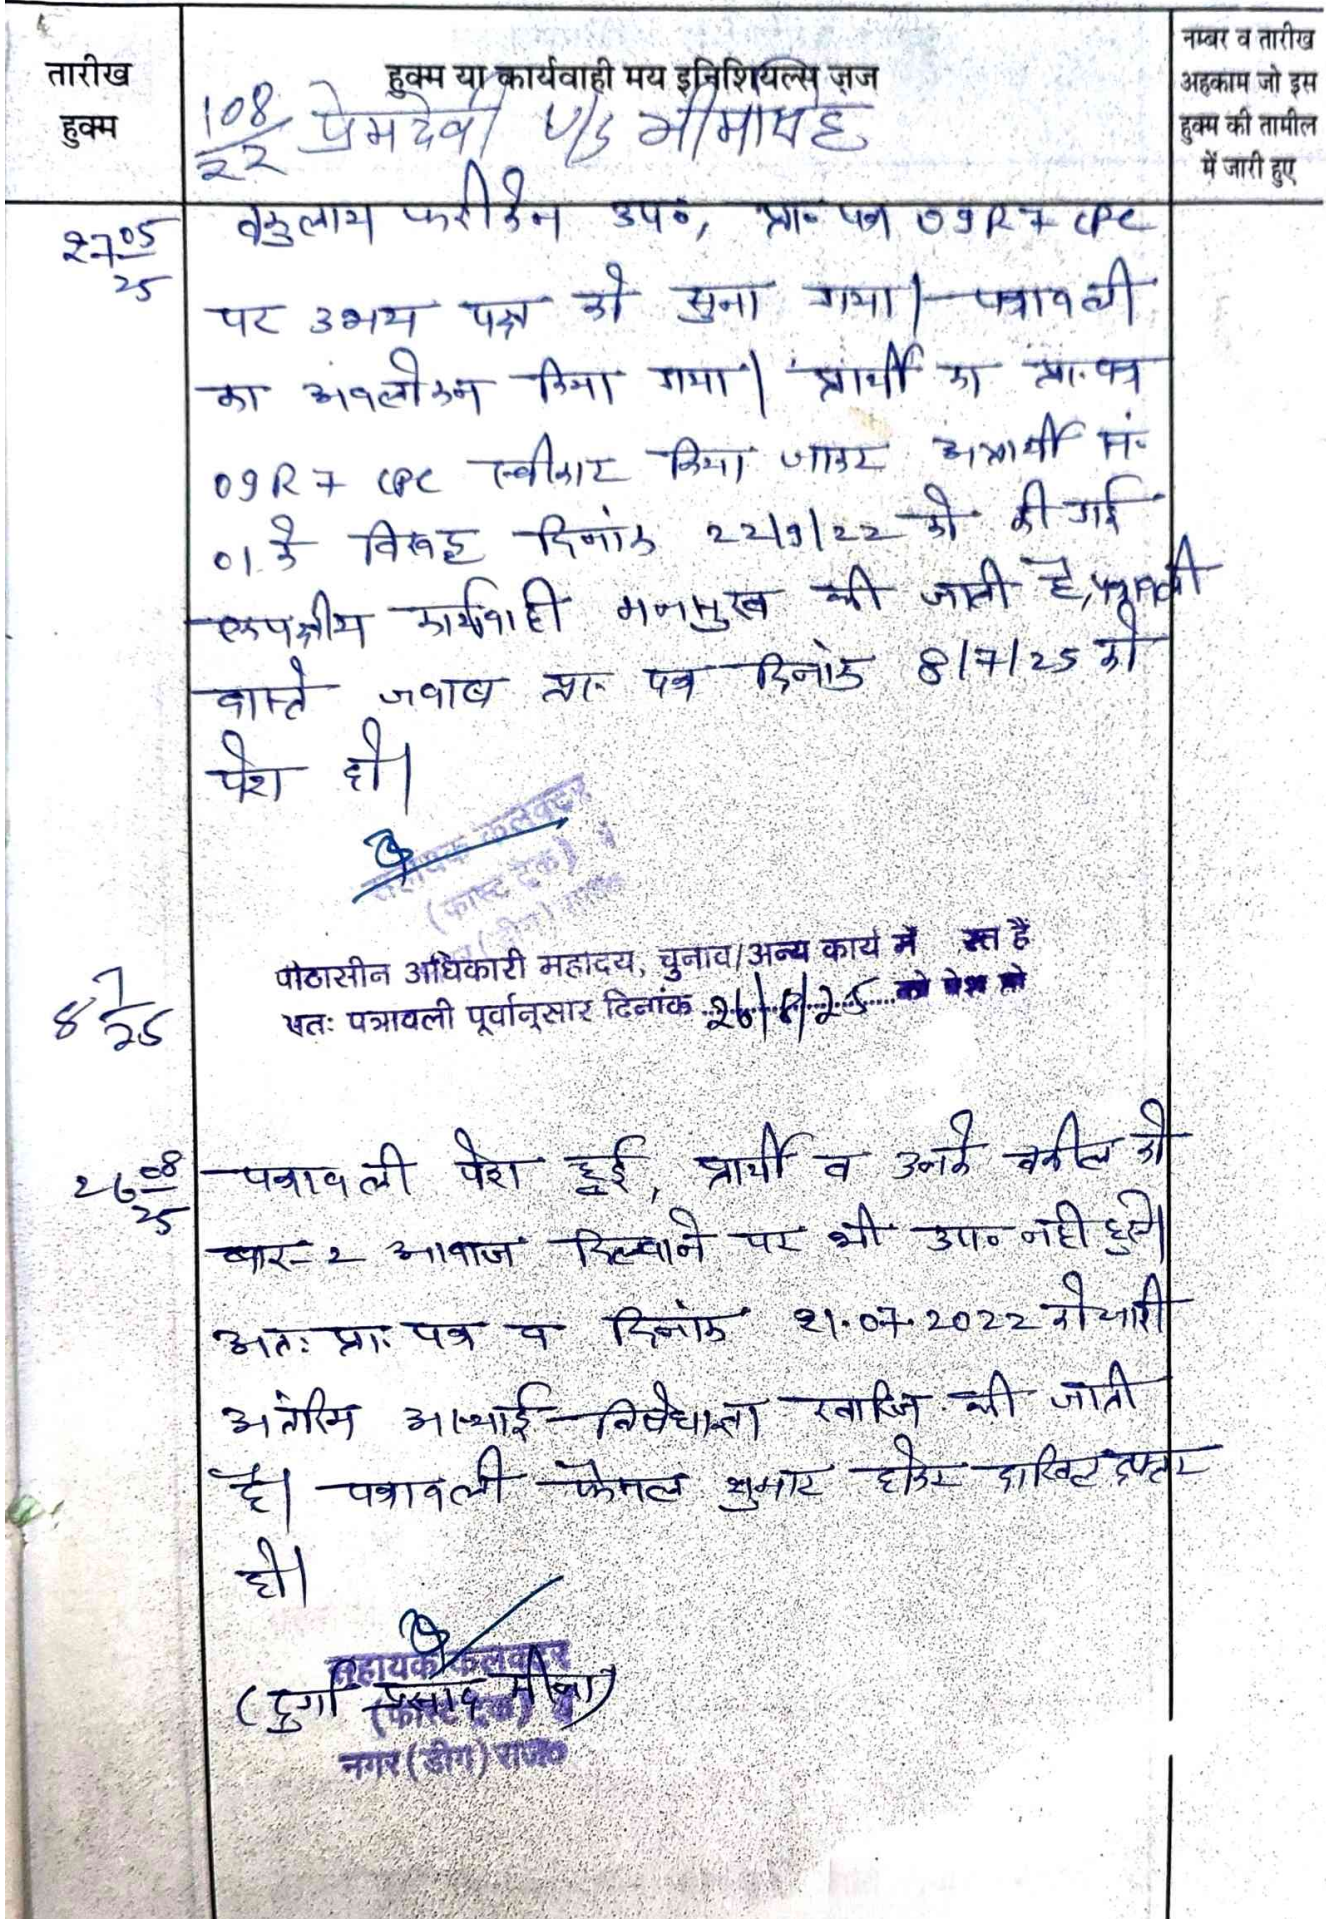 तारीख
हुक्म
हुक्म या कार्यवाही मय इनिशियल्स ज़ज
नम्बर व तारीख
अहकाम जो इस
हुक्म की तामील
में जारी हुए
108/22 प्रेमदेवी v/s भीमसिंह
27 05/25
वकुलाय फरीकेन उप०, प्रा० पत्र O9R7 CPC
पर उभय पक्ष को सुना गया। पत्रावली
का अवलोकन किया गया। प्रार्थी का प्रा. पत्र
O9R7 CPC स्वीकार किया जाकर अप्रार्थी सं.
01 के विरूद्ध दिनांक 22/9/22 को की गई
एकपक्षीय कार्यवाही की जाती है, पत्रावली
वास्ते जवाब प्रा. पत्र दिनांक 8/7/25 को
पेश हो।
सहायक कलक्टर
(फास्ट ट्रेक)
8 7/25
पीठासीन अधिकारी महोदय, चुनाव/अन्य कार्य में रत है
अतः पत्रावली पूर्वानुसार दिनांक 26/8/25 को पेश हो
26 08/25
पत्रावली पेश हुई, प्रार्थी व उनके वकील को
बार-2 आवाज दिलवाने पर भी उप० नही हुये।
अतः प्रा. पत्र व दिनांक 21.07.2022 को जारी
अंतरिम अस्थाई निषेधाज्ञा खारिज की जाती
है। पत्रावली फैसल शुमार होकर दाखिल दफ्तर
हो।
सहायक कलक्टर
(दुर्गा प्रसाद मीना)
(फास्ट ट्रेक)
नगर (डीग) राज०